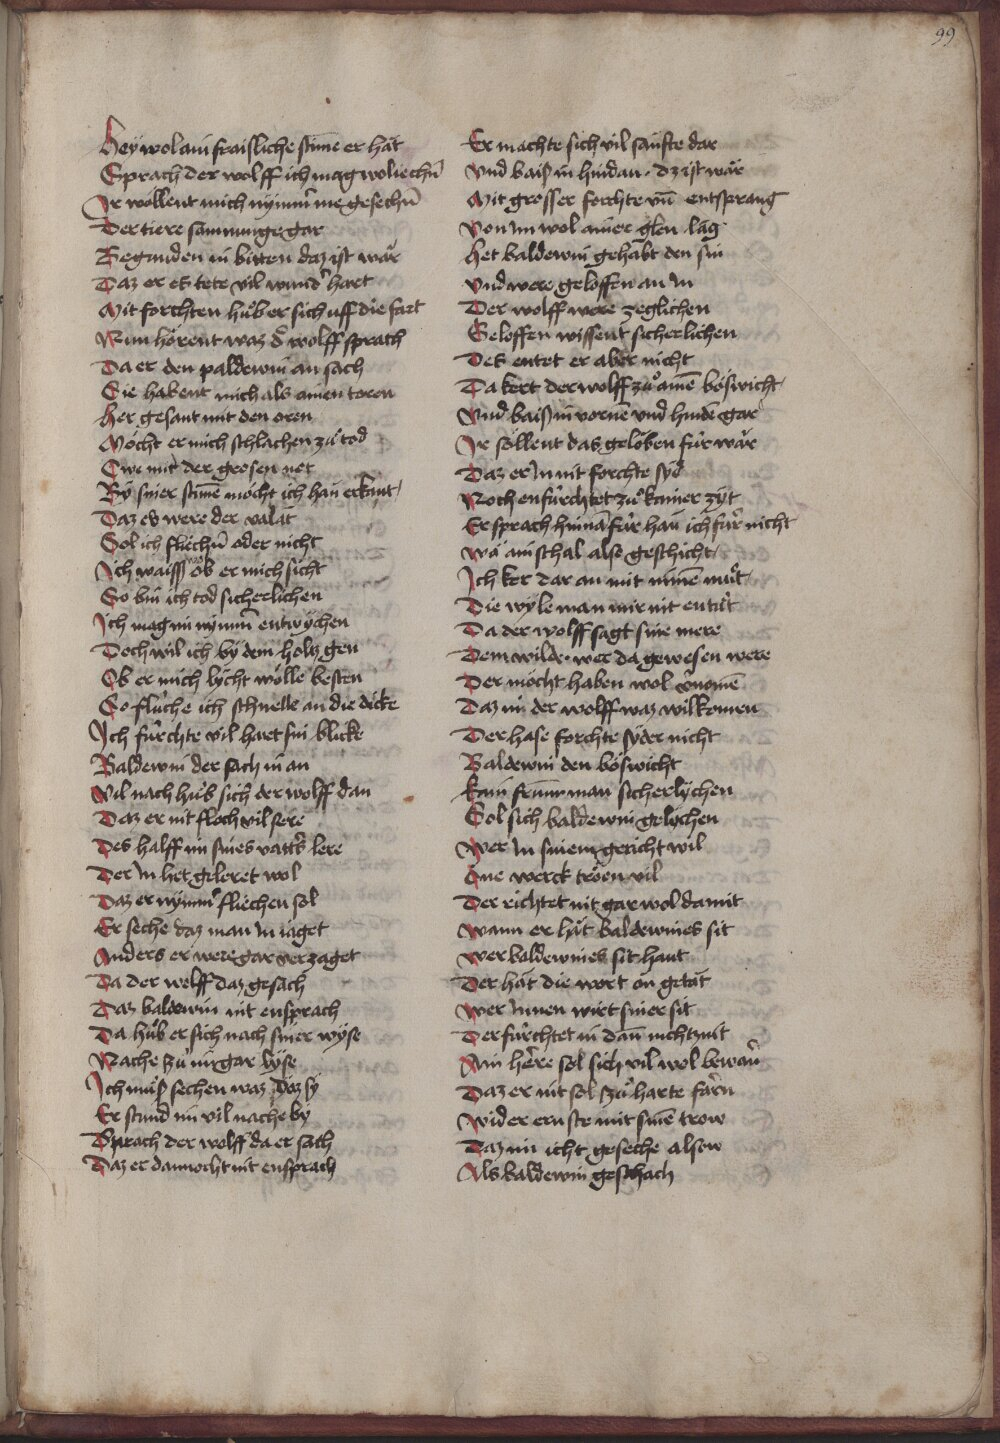 99
Hey wol ain fraisliche stime er hat
Sprach der wolff ich mag wol iechn̄
Ir wöllent mich nÿmm̄ me gesechn̄
Der tiere samnunge gar
Begunden in bitten daz ist war
Daz er es tete vil wund' hart
Mit forchten hůb er sich uff die fart
Nun hörent waz d' wolff sprach
Da er den paldewin an sach
Sie habent mich als ainen toren
Her gesant mit den oren
Möcht er mich schlachen zů tod
Swe mit der grosen not
By siner stime möcht ich han erkant
Daz es were der valät
Sol ich fliechn̄ oder nicht
Ich waiss wol ob er mich sicht
So bin ich tod sicherlichen
Ich mag im nÿmm̄ entwychen
Doch wil ich bÿ dem holtz gen
Ob er mich lycht wölle besten
So flüche ich schnelle an die dicke
Ich fürchte vil hart sin blicke
Baldewin der sach in an
Vil nach hůb sich der wolff dan
Daz er nit floch vil sere
Des halff im sines vatt's lere
Der In het geleret wol
Daz er nÿmm' fliechen sol
Er seche daz man In iaget
Anders er were gar verzaget
Da der wolff daz gesach
Daz baldewin nit ensprach
Da hůb er sich nach siner wÿse
Nache zů im gar lyse
Ich můß sechen waz daz sÿ
Er stund im vil nache by
Sprach der wolff da er sach
Daz er dannocht nit ensprach
Er machte sich vil saufte dar
Und baiß in hindan · dz ist war
Mit grosser forchte vn̄ entsprang
Von Im wol ainer glen lāg
Het baldewin gehabt den sin
Und were geloffen an In
Der wolff were zeglichen
Geloffen wissent sicherlichen
Des entet er aber nicht
Da kert der wolff zů ainē böswicht
Und baiß in vornē und hindē gar
Ir söllent das gelöben für wär
Daz er In nit forchte syd
Noch enfürchtet zů kainer zÿt
Er sprach hinnā für han ich für nicht
Wa ain schal also geschicht
Ich ker dar an mit nimē můt
Die wÿle man mir nit entůt
Da der wolff sagt sine mere
Dem wilde · wer da gewesen were
Der möcht haben wol v'nomē
Daz im der wolff waz wilkomen
Der hase forchte syder nicht
Baldewin den böswicht
Kain frumr man sicherlÿchen
Sol sich baldewin gelÿchen
Wer In sinem gericht wil
Ane werck tröen vil
Der richtet nit gar wol damit
Wann er hat baldewines sit
Wer baldewines sit haut
Der hat die wort on getat
Wer Innen wirt siner sit
Der fürchtet in dan̄ nichtznit
Ain here sol sich vil wol bewarn̄
Daz er nit sol zů harte farn
Wider ernste mit sinē trow
Daz im icht geseche alsow
Als baldewin geschach